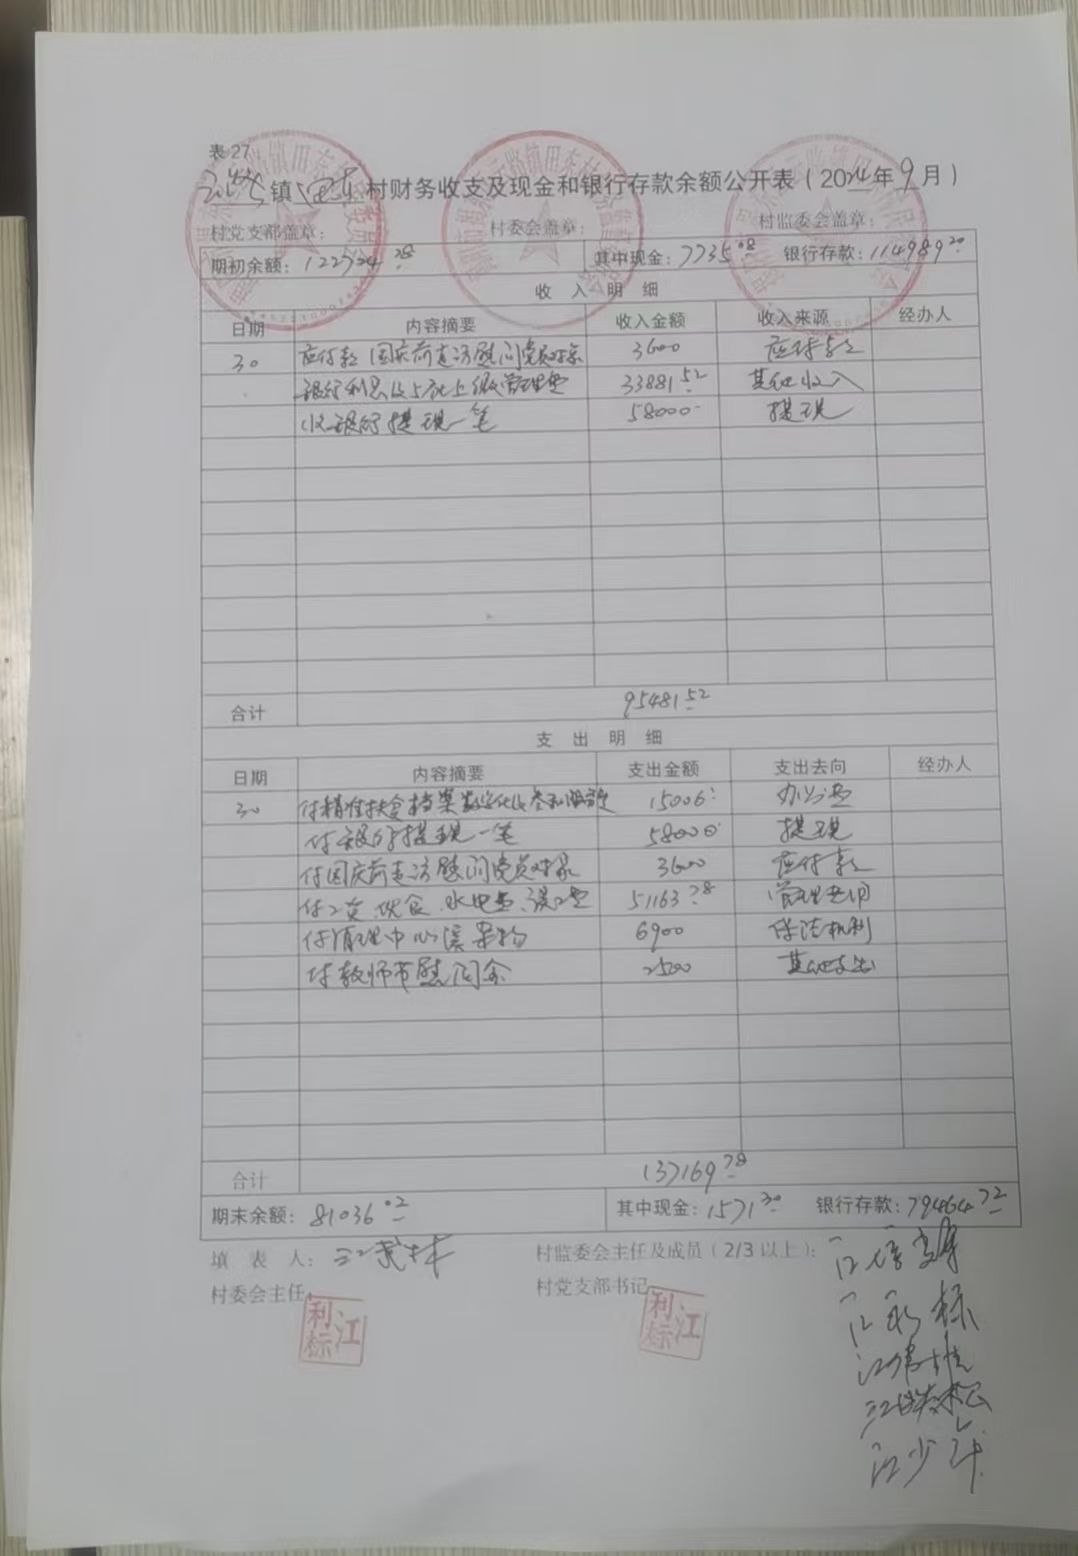 表27
镇田东村财务收支及现金和银行存款余额公开表（2024年9月）
村党支部盖章： 村委会盖章： 村监委会盖章：
期初余额：122724.28 其中现金：7735.08 银行存款：114989.20
收 入 明 细
日期 内容摘要 收入金额 收入来源 经办人
30 应付款 国庆前走访慰问党员对象 3600 应付款
银行利息及上缴管理费 33881.52 其他收入
收银行提现一笔 58000 提现
合计 95481.52
支 出 明 细
日期 内容摘要 支出金额 支出去向 经办人
30 付精准扶贫档案数字化 15006 办公费
付银行提现一笔 58000 提现
付国庆前走访慰问党员对象 3600 应付款
付工资、伙食、水电费、误工费 51163.78 管理费用
付清理中心溪杂物 6900
付教师节慰问金 2500 其他支出
合计 137169.78
期末余额：81036.02 其中现金：1571.30 银行存款：79464.72
填 表 人： 村监委会主任及成员（2/3以上）：
村委会主任： 村党支部书记：
江利标 江利标
江少年